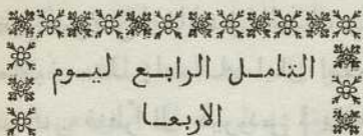 التامل الرابع ليوم
الاربعا